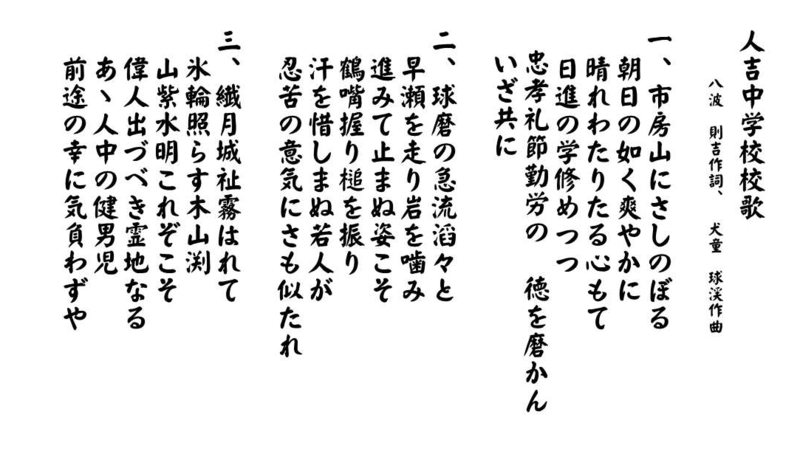 人吉中学校校歌
八波　則吉作詞、　犬童　球渓作曲
一、市房山にさしのぼる
朝日の如く爽やかに
晴れわたりたる心もて
日進の学修めつつ
忠孝礼節勤労の　徳を磨かん
いざ共に
二、球磨の急流滔々と
早瀬を走り岩を噛み
進みて止まぬ姿こそ
鶴嘴握り槌を振り
汗を惜しまぬ若人が
忍苦の意気にさも似たれ
三、繊月城祉霧はれて
氷輪照らす木山渕
山紫水明これぞこそ
偉人出づべき霊地なる
あゝ人中の健男児
前途の幸に気負わずや